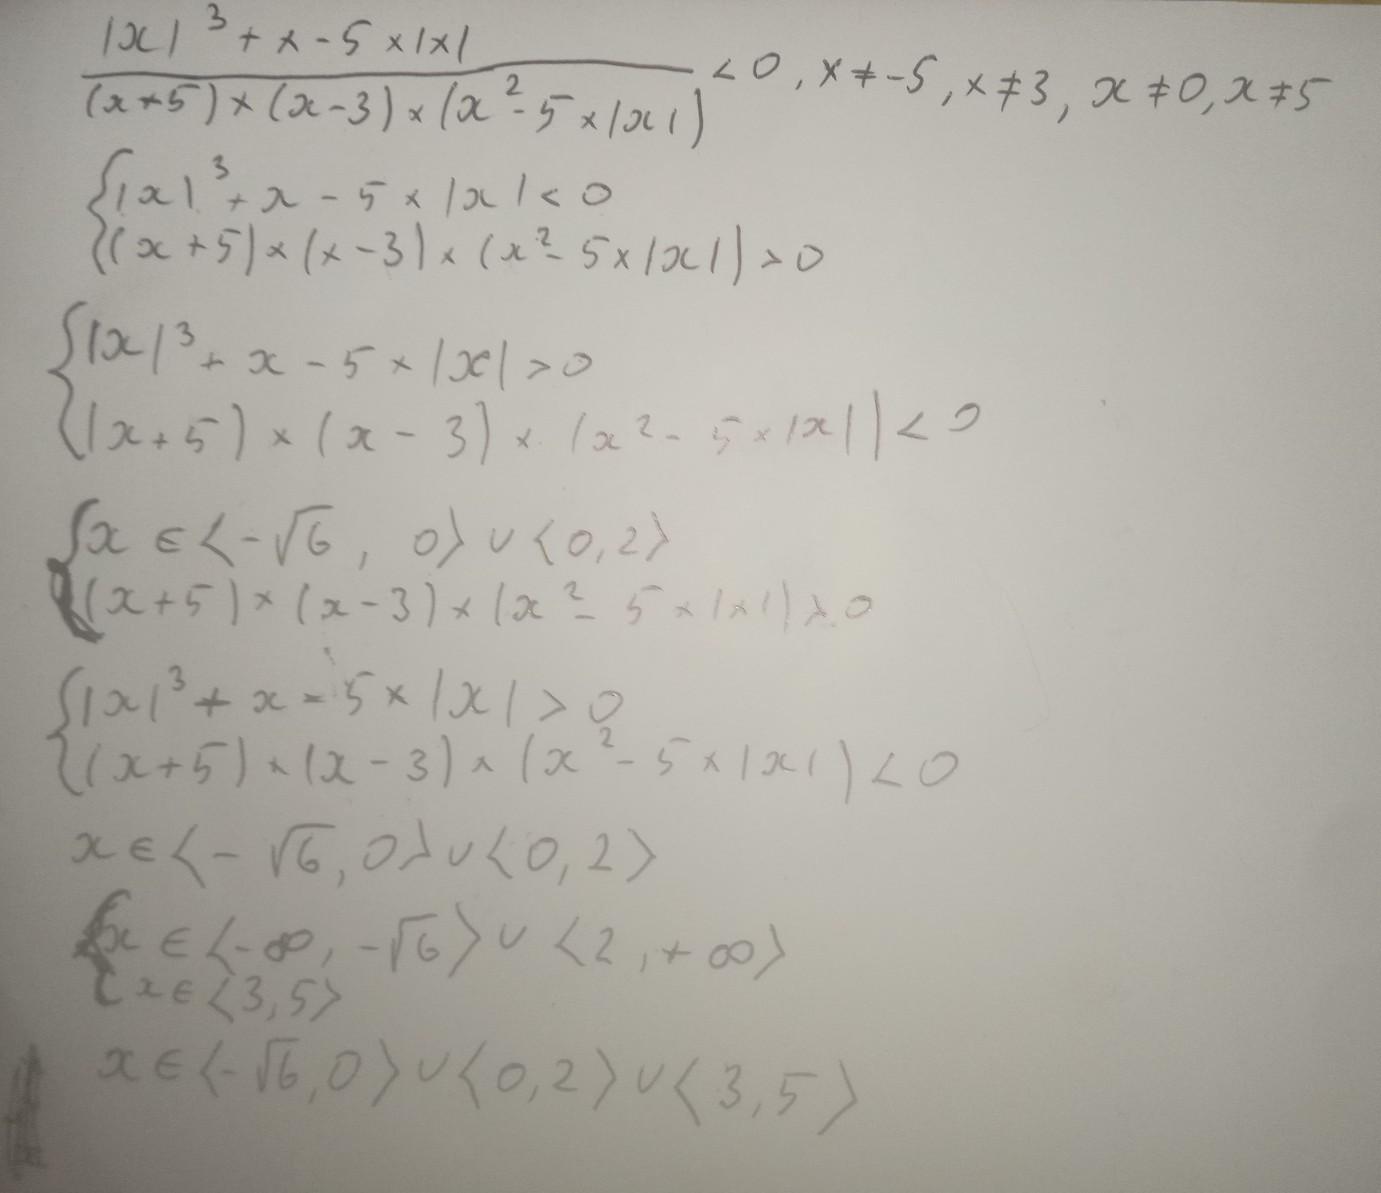 |x|³ + x - 5 × |x|
(x+5) × (x-3) × (x² - 5 × |x|) < 0, x ≠ -5, x ≠ 3, x ≠ 0, x ≠ 5
{ |x|³ + x - 5 × |x| < 0
(x+5) × (x-3) × (x² - 5 × |x|) > 0
{ |x|³ + x - 5 × |x| > 0
(x+5) × (x-3) × (x² - 5 × |x|) < 0
{ x ∈ ⟨-√6, 0⟩ ∪ ⟨0, 2⟩
(x+5) × (x-3) × (x² - 5 × |x|) > 0
{ |x|³ + x - 5 × |x| > 0
(x+5) × (x-3) × (x² - 5 × |x|) < 0
x ∈ ⟨-√6, 0⟩ ∪ ⟨0, 2⟩
{ x ∈ ⟨-∞, -√6⟩ ∪ ⟨2, +∞⟩
x ∈ ⟨3, 5⟩
x ∈ ⟨-√6, 0⟩ ∪ ⟨0, 2⟩ ∪ ⟨3, 5⟩